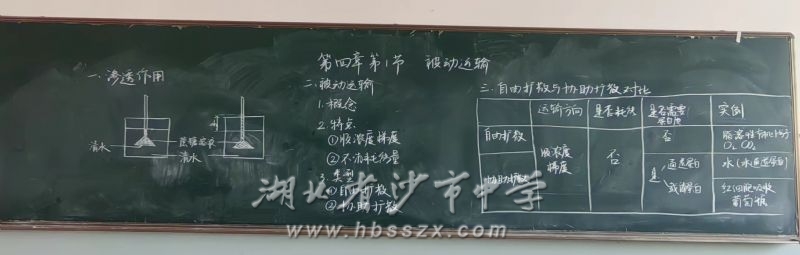 第四章第1节 被动运输
一.渗透作用
清水
蔗糖溶液
清水
二.被动运输
1.概念
2.特点
①顺浓度梯度
②不消耗能量
3.类型
①自由扩散
②协助扩散
三.自由扩散与协助扩散对比
运输方向 是否耗能 是否需要 实例
自由扩散 否
O₂ CO₂
顺浓度
梯度
否
协助扩散 是 通道蛋白 水(水通道蛋白)
载体蛋白 红细胞吸收
葡萄糖
湖北省沙市中学
www.hbsszx.com